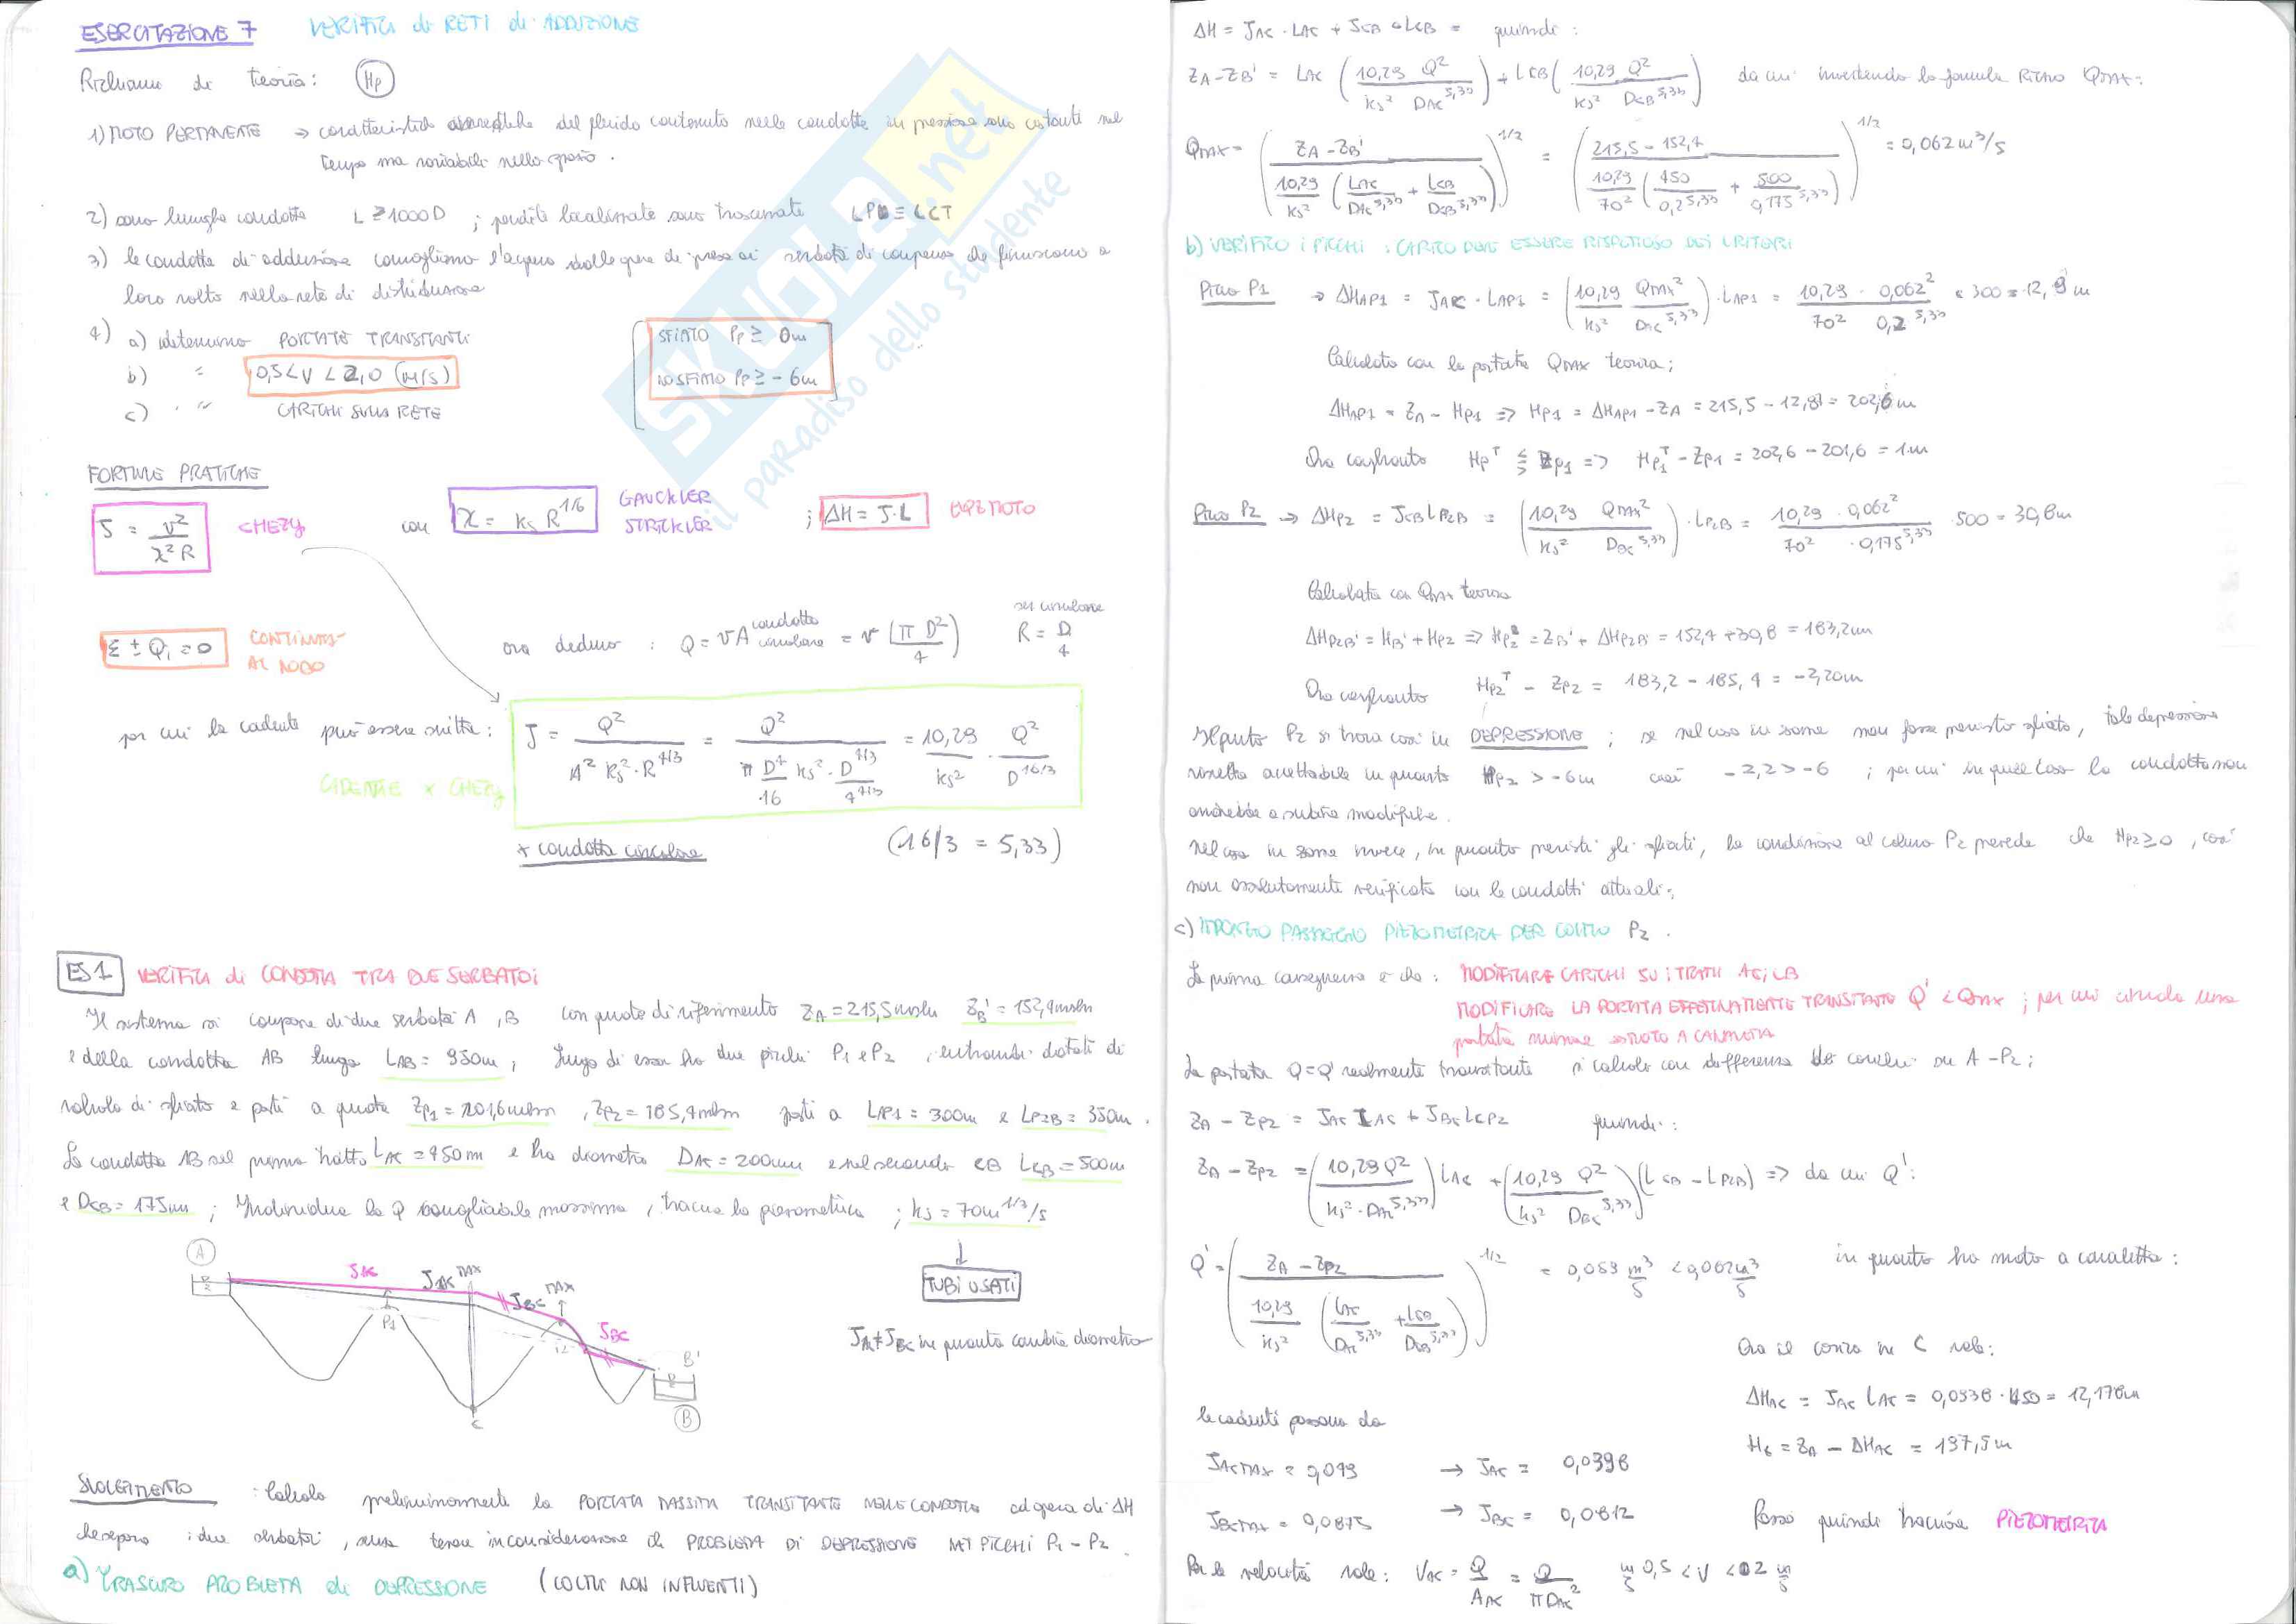 ESERCITAZIONE 7 VERIFICA di RETI di ADDUZIONE
Richiami di teoria: (Hp)
1) MOTO PERMANENTE → caratteristiche del fluido contenuto nelle condotte in pressione sono costanti nel
tempo ma variabili nello spazio.
2) sono lunghe condotte L ≥ 1000 D ; perdite localizzate sono trascurate LP ≡ LCT
3) le condotte di adduzione convogliano l'acqua dalle opere di presa ai serbatoi di compenso che finiscono a
loro volta nella rete di distribuzione
4) a) determino PORTATE TRANSITANTI
b) " 0,5 < V < 2,0 (m/s)
c) " CARICHI SULLA RETE
SFIATO Pp ≥ 0m
NO SFIATO Pp ≥ -6m
FORMULE PRATICHE
J = v²/(χ² R) CHEZY con χ = ks R^1/6 GAUCKLER STRICKLER ; ΔH = J·L EQZ MOTO
Σ ± Qi = 0 CONTINUITA' AL NODO
ora deduco : Q = vA condotta circolare = v (π D²/4) sez circolare R = D/4
per cui la cadente può essere scritta : J = Q²/(A² ks² · R^4/3) = Q²/(π D⁴/16 ks² · D^4/3/4^4/3) = 10,29/ks² · Q²/D^16/3
CADENTE x CHEZY
x condotta circolare (16/3 = 5,33)
ES 1 VERIFICA di CONDOTTA TRA DUE SERBATOI
Il sistema si compone di due serbatoi A, B con quote di riferimento ZA = 215,5 mslm ZB' = 152,4 mslm
e della condotta AB lunga LAB = 950m ; lungo di essa ho due picchi P1 e P2 , entrambi dotati di
valvola di sfiato e posti a quota ZP1 = 201,6 mslm , ZP2 = 185,4 mslm posti a LAP1 = 300m e LP2B = 350m .
La condotta AB nel primo tratto LAC = 450m e ha diametro DAC = 200mm e nel secondo CB LCB = 500m
e DCB = 175mm ; Individua la Q convogliabile massima , traccia la piezometrica ; ks = 70 m^1/3/s
TUBI USATI
A JAC JAC MAX JBC MAX JBC P1 C B' B
JAC ≠ JBC in quanto cambia diametro
SVOLGIMENTO : Calcolo preliminarmente la PORTATA MASSIMA TRANSITANTE NELLE CONDOTTA ad opera di ΔH
che separa i due serbatoi , senza tenere in considerazione il PROBLEMA DI DEPRESSIONE NEI PICCHI P1 - P2 .
a) TRASCURO PROBLEMA di DEPRESSIONE (COLMI NON INFLUENTI)
ΔH = JAC · LAC + JCB · LCB = quindi :
ZA - ZB' = LAC (10,29 Q²/(ks² DAC^5,33)) + LCB (10,29 Q²/(ks² DCB^5,33)) da cui invertendo la formula QMAX :
QMAX = ((ZA - ZB')/(10,29/ks² (LAC/DAC^5,33 + LCB/DCB^5,33)))^1/2 = ((215,5 - 152,4)/(10,29/70² (450/0,2^5,33 + 500/0,175^5,33)))^1/2 = 0,062 m³/s
b) VERIFICO I PICCHI : CARICO DEVE ESSERE RISPETTOSO DEI CRITERI
Picco P1 → ΔHAP1 = JAC · LAP1 = (10,29/ks² QMAX²/DAC^5,33) · LAP1 = 10,29/70² · 0,062²/0,2^5,33 · 300 = 12,9 m
Calcolato con la portata QMAX teorica ;
ΔHAP1 = ZA - HP1 ⇒ HP1 = ΔHAP1 - ZA = 215,5 - 12,81 = 202,6 m
Ora confronto HP^T ≶ ZP1 ⇒ HP1^T - ZP1 = 202,6 - 201,6 = 1m
Picco P2 → ΔHP2 = JCB LP2B = (10,29/ks² QMAX²/DBC^5,33) · LP2B = 10,29 · 0,062²/(70² · 0,175^5,33) · 500 = 30,8m
Calcolata con QMAX teorica
ΔHP2B' = HB' + HP2 ⇒ HP2 = ZB' + ΔHP2B' = 152,4 + 30,8 = 183,2m
Ora confronto HP2^T - ZP2 = 183,2 - 185,4 = -2,20m
Il punto P2 si trova così in DEPRESSIONE ; se nel caso in esame non fosse previsto sfiato, tale depressione
sarebbe accettabile in quanto HP2 > -6m così -2,2 > -6 ; per cui in quel caso la condotta non
andrebbe a subire modifiche .
Nel caso in esame invece, in quanto previsti gli sfiati, la condizione al colmo P2 prevede che HP2 ≥ 0 , così
non assolutamente verificata con le condotti attuali ;
c) IMPONGO PASSAGGIO PIEZOMETRICA PER COLMO P2 .
La prima conseguenza è che : MODIFICARE CARICHI SU i TRATTI AC ; CB
MODIFICARE LA PORTATA EFFETTIVAMENTE TRANSITANTE Q' < QMAX ; per cui circola una
portata minore e MOTO A CANALETTA
La portata Q = Q' realmente transitante si calcola con differenza dei carichi su A - P2 ;
ZA - ZP2 = JAC LAC + JBC LCP2 quindi :
ZA - ZP2 = (10,29 Q²/(ks² · DAC^5,33)) LAC + (10,29 Q²/(ks² DBC^5,33)) (LCB - LP2B) ⇒ da cui Q' :
Q' = ((ZA - ZP2)/(10,29/ks² (LAC/DAC^5,33 + LCB/DCB^5,33)))^1/2 = 0,059 m³/s < 0,062 m³/s in quanto ho moto a canaletta :
Ora il carico in C vale :
ΔHAC = JAC LAC = 0,0398 · 450 = 12,178m
HC = ZA - ΔHAC = 197,5m
le cadenti passano da
JAC MAX = 0,043 → JAC = 0,0398
JBC MAX = 0,0875 → JBC = 0,0812
Posso quindi tracciare PIEZOMETRICA
Per le velocità vale : VAC = Q/AAC = Q/(π DAC²) m/s 0,5 < V < 2 m/s
SKUOLA.net
il paradiso dello studente